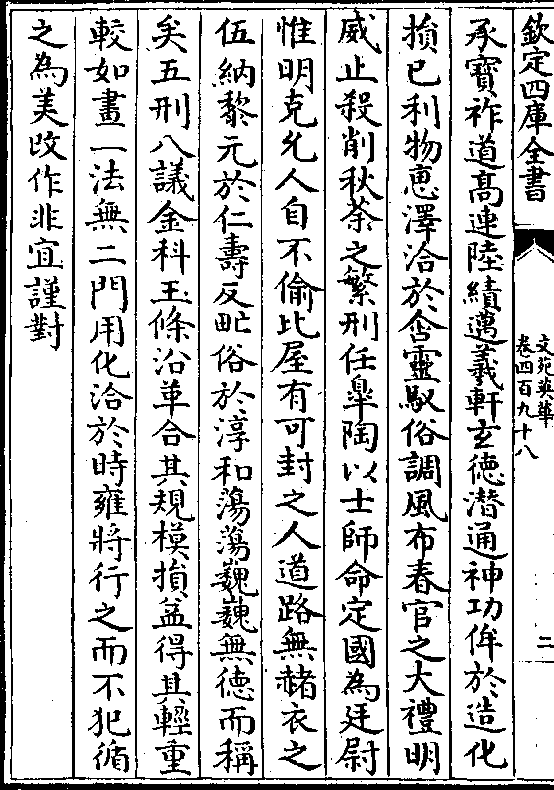 欽定四庫全書
文苑英華
卷四百九十八
二
承寳祚道髙連陸績邁羲軒玄徳潛通神功侔於造化
損已利物恵澤洽於含靈馭俗調風布春官之大禮明
威止殺削秋荼之繁刑任臯陶以士師命定國為廷尉
惟明克允人自不偷比屋有可封之人道路無赭衣之
伍納黎元於仁壽反甿俗於淳和蕩蕩巍巍無徳而稱
矣五刑八議金科玉條沿革合其規模損益得其輕重
較如畫一法無二門用化洽於時雍將行之而不犯循
之為美改作非宜謹對